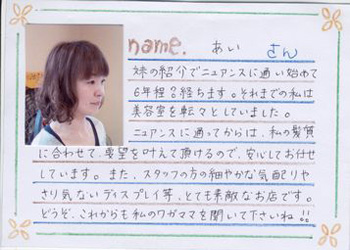 name. あい さん
妹の紹介でニュアンスに通い始めて
6年程?経ちます。それまでの私は
美容室を転々としていました。
ニュアンスに通ってからは、私の髪質
に合わせて、要望を叶えて頂けるので、安心してお任せ
しています。また、スタッフの方の細やかな気配りや
さり気ないディスプレイ等、とても素敵なお店です。
どうぞ、これからも私のワガママを聞いて下さいね!!